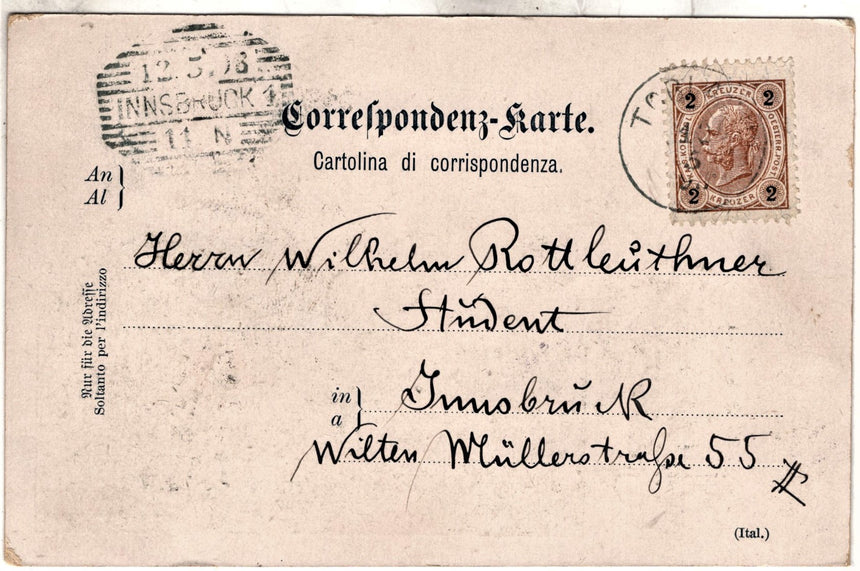 12.5.98
INNSBRUCK 1
11 N
Correſpondenz-Karte.
Cartolina di corrispondenza.
2 KREUZER 2
OESTERR. POST
2 KREUZER 2
An
Al
Herrn Wilhelm Rottleuthner
Student
in
a
Innsbruck
Wilten Müllerstraße 55
Nur für die Adreſſe
Soltanto per l'indirizzo
(Ital.)